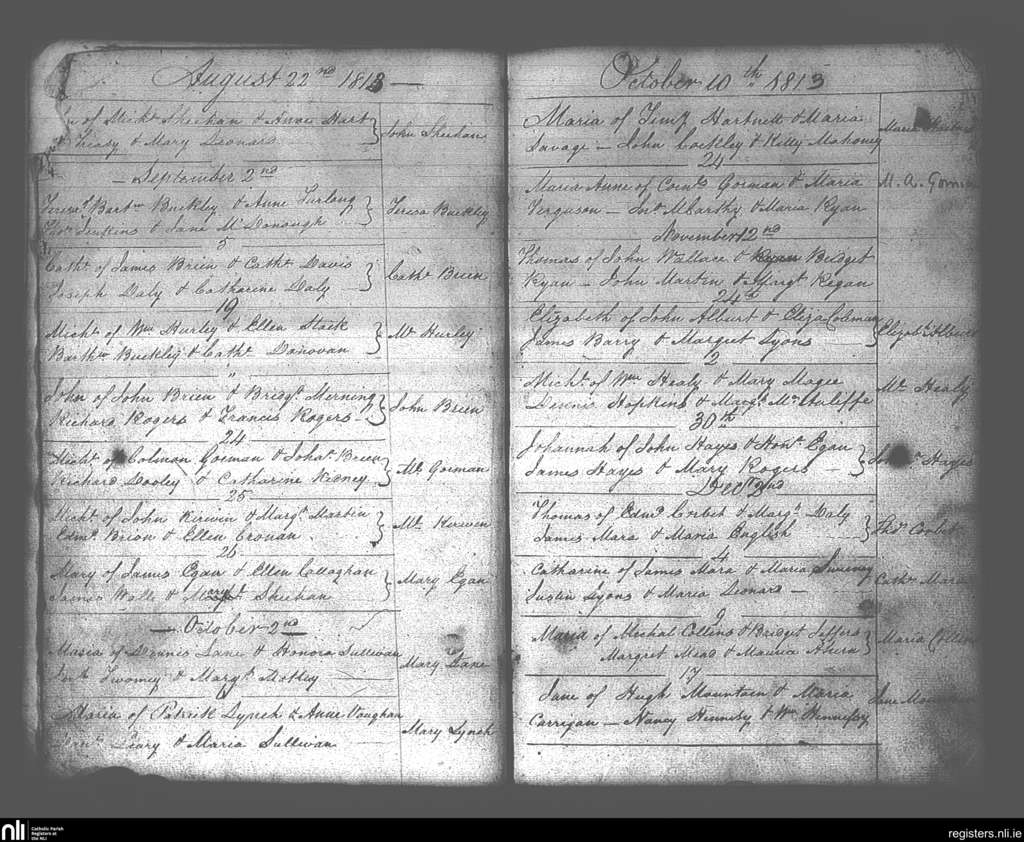 August 22nd 1813
of Michl Sheehan & Anne Hart
Treasy & Mary Leonard
John Sheehan
September 2nd
Teresa Bartw Buckley & Anne Furlong
Thos Jenkins & Jane McDonough
Teresa Buckley
5
Cathe of James Brien & Cathe Davis
Joseph Daly & Catharine Daly
Cathe Brien
19
Michl of Wm Hurley & Ellen Stack
Barthw Buckley & Cathe Donovan
Ml Hurley
"
John of John Brien & Bridgt Merning
Richard Rogers & Francis Rogers
John Brien
24
Michl of Colman Gorman & Johan Brien
Richard Dooley & Catharine Kidney
Ml Gorman
25
Michl of John Kirwin & Margt Martin
Edmd Brion & Ellen Cronan
Ml Kerwen
26
Mary of James Egan & Ellen Callaghan
James Walls & Mary Sheehan
Mary Egan
October 2nd
Maria of Dennis Lane & Honora Sullivan
Twomey & Margt Motley
Mary Lane
Maria of Patrick Lynch & Anne Vaughan
Leary & Maria Sullivan
Mary Lynch
October 10th 1813
Maria of Timy Hartnett & Maria
Savage – John Coakley & Kitty Mahoney
Maria
24
Maria Anne of Corns Gorman & Maria
Ferguson – Jno McCarthy & Maria Ryan
M. A. Gorman
November 12nd
Thomas of John Wallace & Ryan Bridget
Ryan – John Martin & Margt Regan
24th
Elizabeth of John Alburt & Eliza Coleman
James Barry & Margret Lyons
Elizbt Alburt
2
Michl of Wm Healy & Mary Magee
Dennis Hopkins & Margt McAuliffe
Ml Healy
30th
Johannah of John Hayes & Honr Egan
James Hayes & Mary Rogers
Hayes
Decr 2nd
Thomas of Edmd Corbet & Margt Daly
James Mara & Maria English
Thos Corbet
4
Catharine of James Mara & Maria Sweeney
Justin Lyons & Maria Leonard
Cathe Mara
9
Maria of Michal Collins & Bridget Jeffers
Margret Mead & Maurice Ahern
Maria Collins
17
Jane of Hugh Mountain & Maria
Carrigan – Nancy Hennesy & Wm Hennessy
Jane Mountain
nli
Catholic Parish
Registers at
the NLI
registers.nli.ie